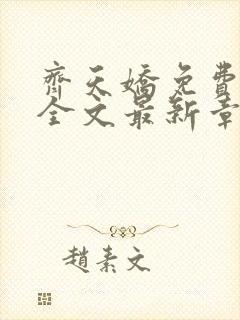 齐天嬌免費
全文最新章
趙素文